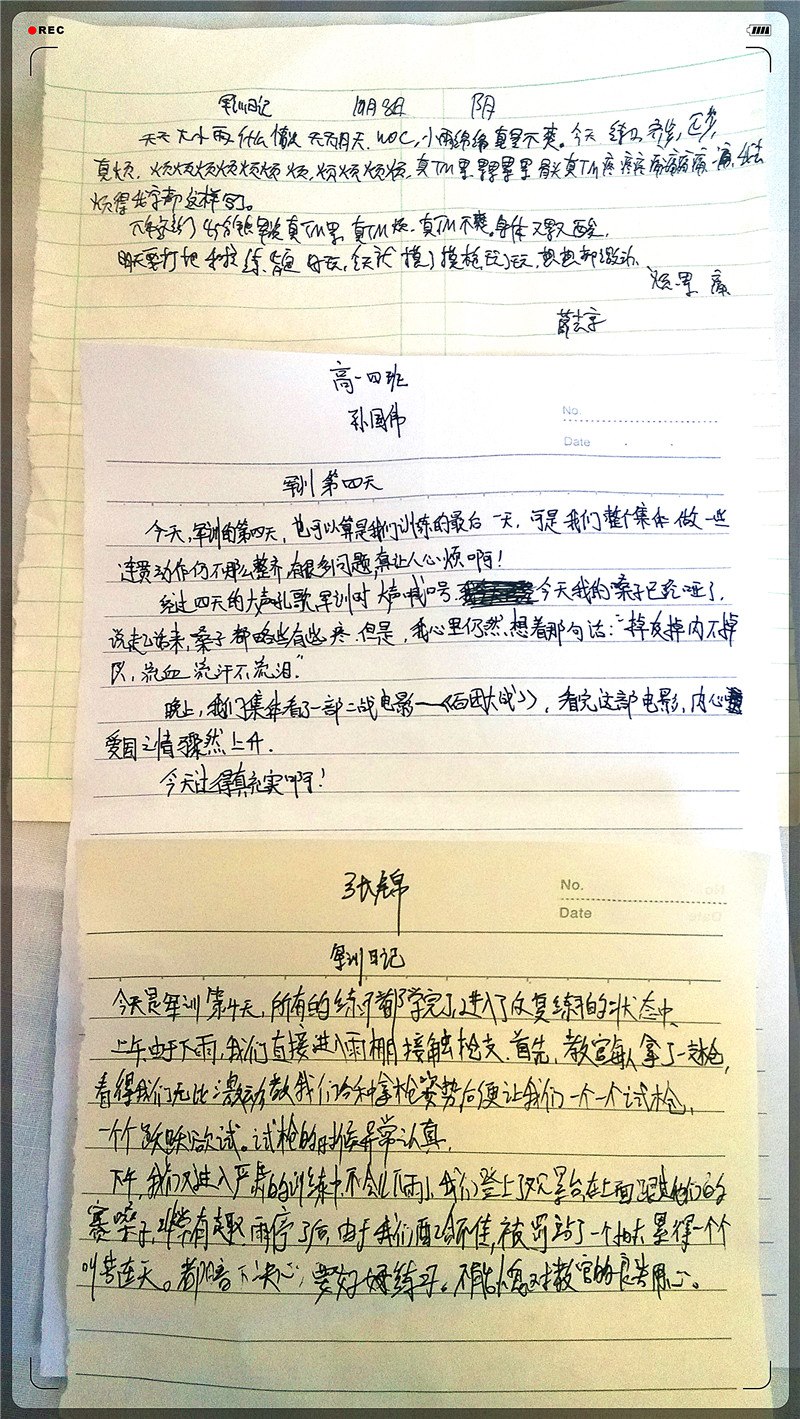 REC
军训日记 10月8日 阴
天天大小雨什么情况天天阴天. WOC, 小雨绵绵真是不爽。今天练了齐步, 正步,
真烦, 烦烦烦烦烦烦烦 烦, 烦烦烦烦, 真TM累 累累累累 骨头真TM疼疼疼
烦得我字都这样写了。
真TM累, 真TM烦, 真TM不爽. 身体又累又酸,
明天要打 想想都激动.
烦 累 痛
高一四班
孙国伟
No.
Date
军训第四天
今天, 军训的第四天, 也可以算是我们训练的最后一天, 可是我们整个集体做一些
连贯动作仍不那么整齐, 有很多问题, 真让人心烦啊!
经过四天的大声礼歌, 军训时大声喊口号. 今天我的嗓子已经哑了,
说起话来, 嗓子都略些有些疼. 但是, 我心里仍然想着那句话:“掉皮掉肉不掉
队, 流血流汗不流泪.”
晚上, 我们集体看了一部二战电影——《百团大战》, 看完这部电影, 内心
爱国之情骤然上升.
今天过得真充实啊!
张锦
No.
Date
军训日记
今天是军训第4天, 所有的练习都学完了, 进入了反复练习的状态中.
上午由于下雨, 我们直接进入雨棚接触枪支. 首先, 教官每人拿了一支枪,
看得我们无比激动教我们各种拿枪姿势后便让我们一个一个试枪,
一个个跃跃欲试。试枪的时候异常认真.
下午, 我们又进入严肃的训练中不会儿下雨了, 我们登上了观景台在上面跟其他们的
赛嗓子, 非常有趣. 雨停了后, 由于我们配合不佳, 被罚站了一个 累得一个个
叫苦连天。都暗下决心, 要好好练习。不能忽对教官的良苦用心。